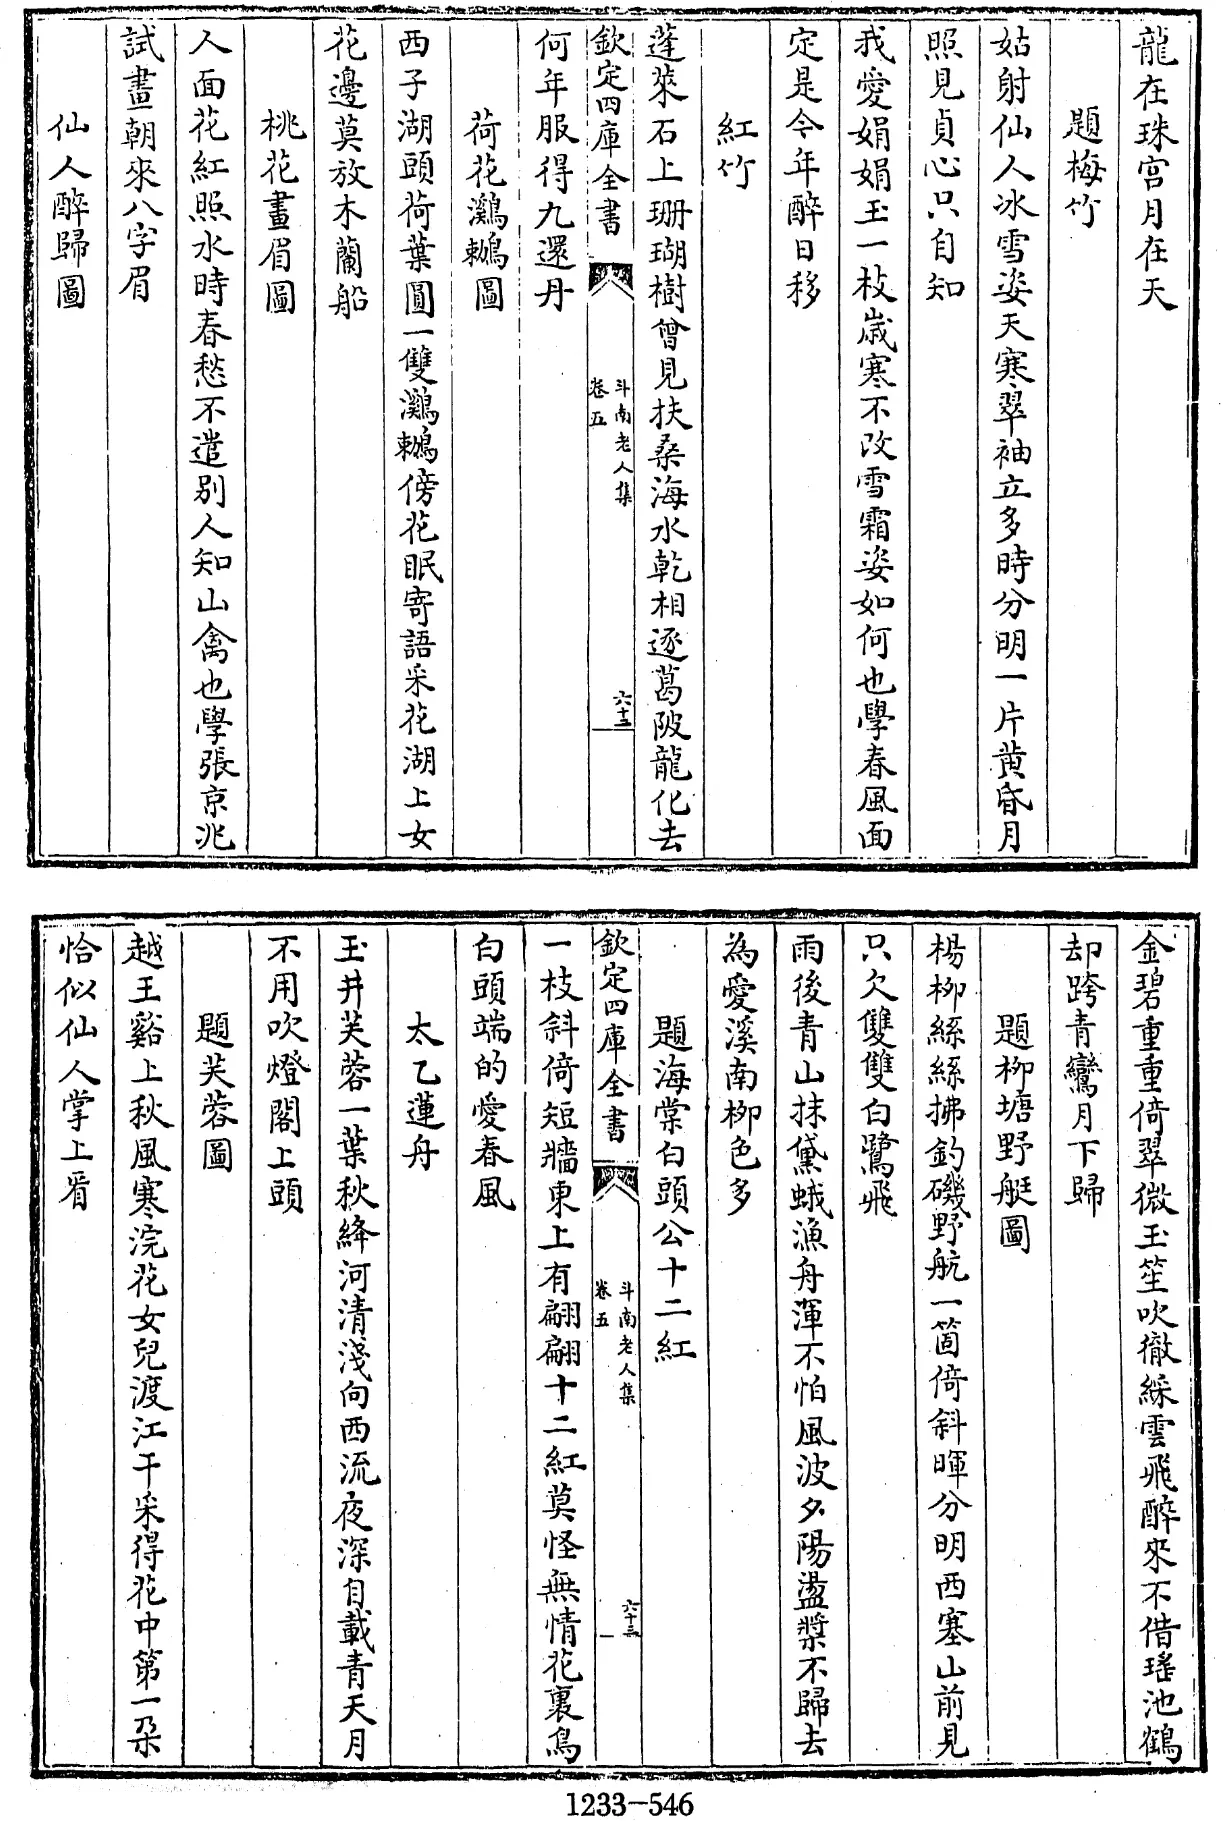 龍在珠宮月在天
題梅竹
姑射仙人冰雪姿天寒翠袖立多時分明一片黄昏月
照見貞心只自知
我愛娟娟玉一枝歳寒不改雪霜姿如何也學春風面
定是今年醉日移
紅竹
蓬萊石上珊瑚樹曾見扶桑海水乾相逐葛陂龍化去
欽定四庫全書
斗南老人集
卷五
六十二
何年服得九還丹
荷花鸂鶒圖
西子湖頭荷葉圓一雙鸂鶒傍花眠寄語采花湖上女
花邊莫放木蘭船
桃花畫眉圖
人面花紅照水時春愁不遣别人知山禽也學張京兆
試畫朝來八字眉
仙人醉歸圖
金碧重重倚翠微玉笙吹徹綵雲飛醉來不借瑤池鶴
却跨青鸞月下歸
題柳塘野艇圖
楊柳絲絲拂釣磯野航一箇倚斜暉分明西塞山前見
只欠雙雙白鷺飛
雨後青山抹黛蛾漁舟渾不怕風波夕陽盪槳不歸去
為愛溪南柳色多
題海棠白頭公十二紅
欽定四庫全書
斗南老人集
卷五
六十三
一枝斜倚短牆東上有翩翩十二紅莫怪無情花裏鳥
白頭端的愛春風
太乙蓮舟
玉井芙蓉一葉秋絳河清淺向西流夜深自載青天月
不用吹燈閣上頭
題芙蓉圖
越王谿上秋風寒浣花女兒渡江干采得花中第一朶
恰似仙人掌上㸔
1233-546